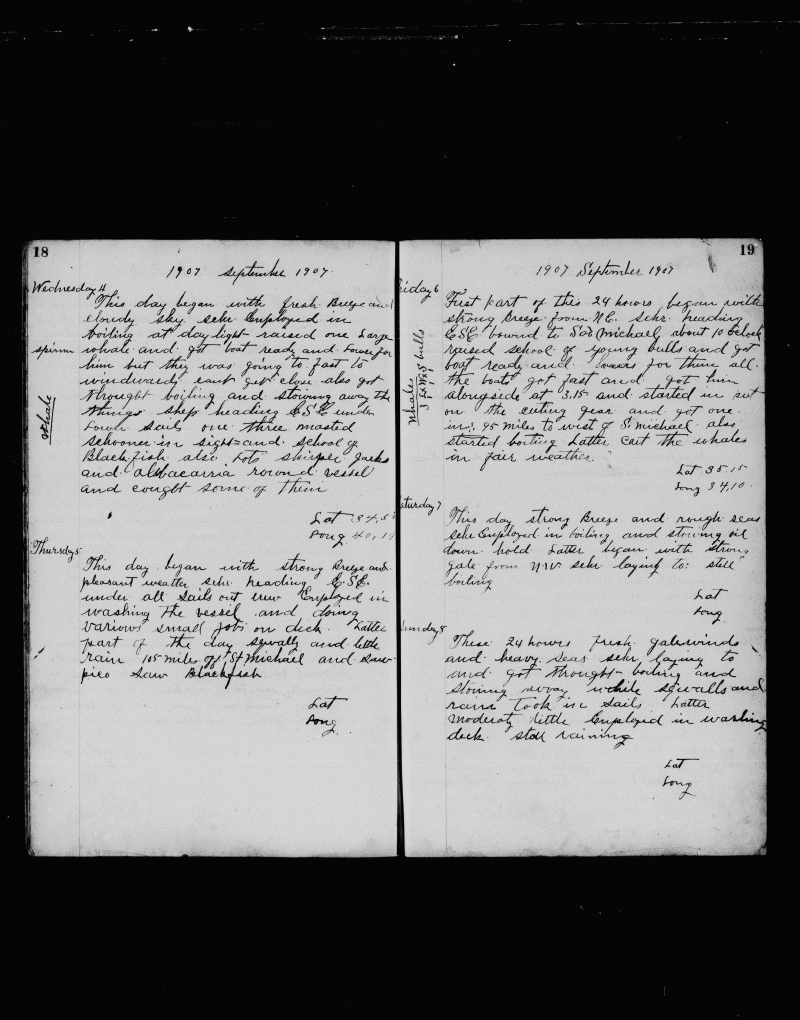 18
1907 September 1907
Wednesday 4
This day began with fresh Breeze and
cloudy sky schr Employed in
boiling at daylight raised one Large
sperm whale and got boat ready and Lower for
him but they was going to fast to
windward cant get close also got
throught boiling and stowing away the
things ship heading E.S.E under
Lower sails one three masted
schooner in sight and school of
Blackfish also Lots skipper jacks
and albacarria round vessel
and cought some of them
whale
Lat 34,5
Long 40,1
Thursday 5
This day began with strong Breeze and
pleasant weatter schr heading E.S.E.
under all sails out crew Employed in
washing the vessel and doing
various small jobs on deck Latter
part of the day sqwally and little
rain 105 miles off St Michael and saw
pico saw Blackfish
Lat
Long
19
1907 September 1907
riday 6
First part of this 24 hours began with
strong Breeze from N.E. schr. heading
E.S.E bound to Sao Michael, about 10 oclock
raised school of young bulls and got
boat ready and lowers for them all
the boats got fast and got him
alongside at 3.15 and started in put
on the cuting gear and got one
in; 95 miles to west of St. michael also
started boiling Latter cut the whales
in fair weather
Whales
3 bulls
Lat 35.15
Long 34,10
aturday 7
This day strong Breeze and rough seas
schr Employed in boiling and stowing oil
down hold Latter began with strong
gale from N.W. schr laying to: still
boiling
Lat
Long
unday 8
These 24 hours fresh galewinds
and heavy seas schr laying to
and got throught boiling and
stowing away while sqwalls and
rain took in sails Latter
moderaty little Employed in washing
deck still raining
Lat
Long